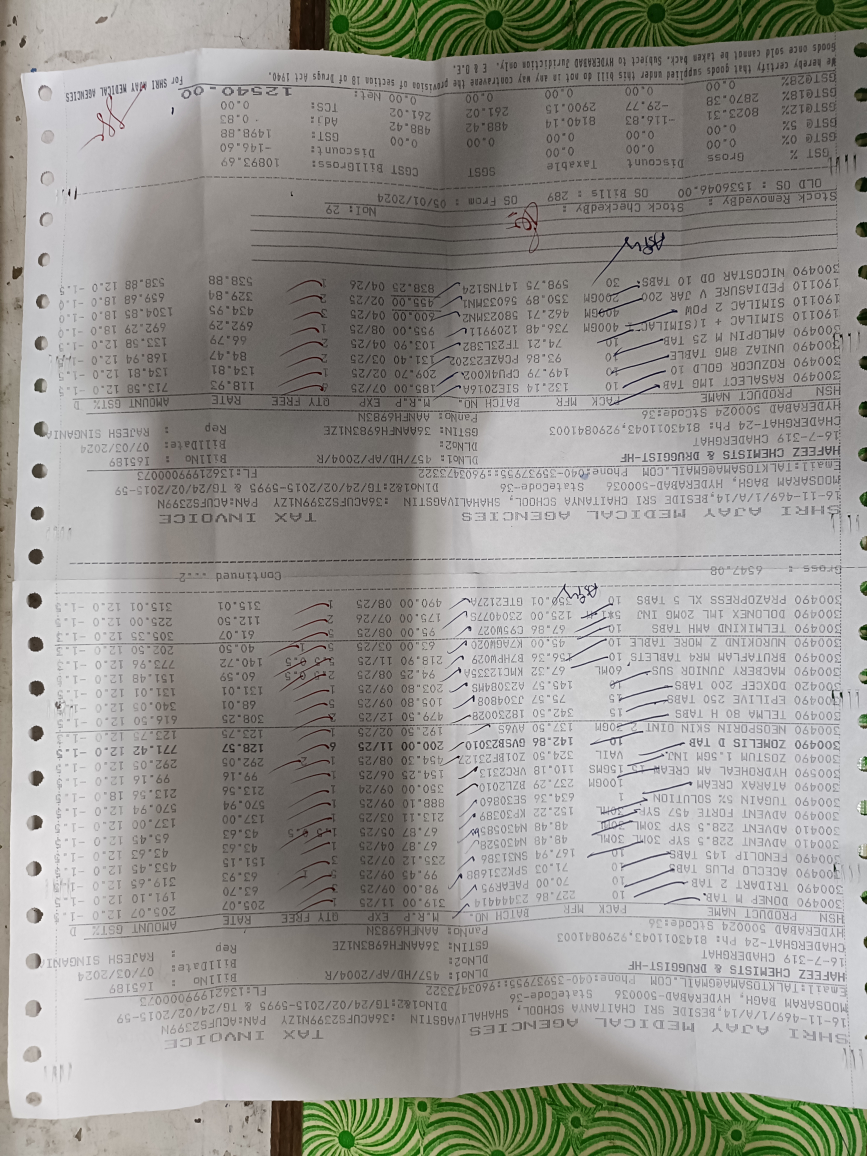 SHRI AJAY MEDICAL AGENCIES TAX INVOICE
16-11-469/1/A/14,BESIDE SRI CHAITANYA SCHOOL, SHAHALIVAGSTIN :36ACUFS2399N1ZY PAN:ACUFS2399N
MOOSARAM BAGH, HYDERABAD-500036 StateCode-36 DlNo1&2:TG/24/02/2015-5995 & TG/24/02/2015-59
Email:TALKTOSAMA@GMAIL.COM Phone:040-35937955::9603473322 FL:13621999000073
HAFEEZ CHEMISTS & DRUGGIST-HF DLNo1: 457/HD/AP/2004/R BillNo : I65189
16-7-319 CHADERGHAT DLNo2: BillDate: 07/03/2024
CHADERGHAT-24 Ph: 8143011043,9290841003 GSTIN: 36AANFH6983N1ZE Rep : RAJESH SINGANIA
HYDERABAD 500024 Stcode:36 PanNo: AANFH6983N
HSN PRODUCT NAME PACK MFR BATCH NO. M.R.P EXP QTY FREE RATE AMOUNT GST% D
300490 DONEP M TAB 10 227.86 2344414 319.00 11/25 1 205.07 205.07 12.0 -1.5
300490 TRIDART 2 TAB 10 70.00 PAEA695 98.00 09/25 3 63.70 191.10 12.0
300490 ACECLO PLUS TABS 10 71.03 SPK231688 99.45 09/25 5 63.93 319.65 12.0
300490 FENOLIP 145 TABS 10 167.94 SN31386 235.12 07/25 3 151.15 453.45 12.0 -1.5
300410 ADVENT 228.5 SYP 30ML 30ML 48.48 N430528 67.87 04/25 1 43.63 43.63 12.0 -1.5
300410 ADVENT 228.5 SYP 30ML 30ML 48.48 67.87 05/25 43.63 65.45 12.0 -1.5
300410 ADVENT FORTE 457 SYP 30ML 152.22 KP30389 213.11 03/25 1 137.00 137.00 12.0 -1.5
300490 TUGAIN 5% SOLUTION 1 634.36 SE30860 888.10 09/25 1 570.94 570.94 12.0 -1.5
300490 ATARAX CREAM 100GM 237.29 BZL22010 350.00 09/24 1 213.56 213.56 18.0
300590 HYDROHEAL AM CREAM 15 15GMS 110.18 VRC2313 154.25 06/25 1 99.16 99.16 12.0
300490 ZOSTUM 1.5GM INJ VAIL 324.50 ZO1BF23127 454.30 08/25 292.05 292.05 12.0
300490 ZOMELIS D TAB 10 142.86 GVSB23010 200.00 11/25 6 128.57 771.42 12.0 -1.5
300490 NEOSPORIN SKIN OINT 2 20GM 137.50 192.50 02/25 1 123.75 123.75 12.0
300490 TELMA 80 H TABS 15 342.50 18230282 479.50 12/25 2 308.25 616.50 12.0
300490 EPILIVE 250 TABS 15 75.57 J304808 105.80 09/25 5 68.01 340.05 12.0
300420 DOXCEF 200 TABS 10 145.57 203.80 09/25 1 131.01 131.01 12.0 -1.5
300490 MACBERY JUNIOR SUS 60ML 67.32 KMC12335A 94.25 08/25 60.59 151.48 12.0
300490 BRUTAFLAM MR4 TABLETS 10 156.36 B7HPM029 218.90 11/25 5.5 0.5 140.72 773.96 12.0
300490 NUROKIND Z MORE TABLE 10 45.00 K7AGW020 63.00 03/25 5 1 40.50 202.50 12.0 -1.5
300490 TELMIKIND AMH TABS 10 67.86 95.00 08/25 5 61.07 305.35 12.0
300490 DOLONEX 1ML 20MG INJ 5*1 125.00 23040775 175.00 07/26 2 112.50 225.00 12.0
300490 PRAZOPRESS XL 5 TABS 10 350.01 GTE2127A 490.00 08/25 1 315.01 315.01 12.0 -1.5
Gross : 6547.08 Continued ...2
SHRI AJAY MEDICAL AGENCIES TAX INVOICE
16-11-469/1/A/14,BESIDE SRI CHAITANYA SCHOOL, SHAHALIVAGSTIN :36ACUFS2399N1ZY PAN:ACUFS2399N
MOOSARAM BAGH, HYDERABAD-500036 StateCode-36 DlNo1&2:TG/24/02/2015-5995 & TG/24/02/2015-59
Email:TALKTOSAMA@GMAIL.COM Phone:040-35937955::9603473322 FL:13621999000073
HAFEEZ CHEMISTS & DRUGGIST-HF DLNo1: 457/HD/AP/2004/R BillNo : I65189
16-7-319 CHADERGHAT DLNo2: BillDate: 07/03/2024
CHADERGHAT-24 Ph: 8143011043,9290841003 GSTIN: 36AANFH6983N1ZE Rep : RAJESH SINGANIA
HYDERABAD 500024 Stcode:36 PanNo: AANFH6983N
HSN PRODUCT NAME PACK MFR BATCH NO. M.R.P EXP QTY FREE RATE AMOUNT GST% D
300490 RASALECT 1MG TAB 10 132.14 SIE2016A 185.00 07/25 118.93 713.58 12.0 -1.5
300490 ROZUCOR GOLD 10 10 149.79 CPAUK002 209.70 02/25 1 134.81 134.81 12.0 -1.5
300490 UNIAZ 8MG TABLE 10 93.86 PCAZE23202 131.40 03/25 2 84.47 168.94 12.0
300490 AMLOPIN M 25 TAB 10 74.21 TP23L382 103.90 04/25 2 66.79 133.58 12.0
190110 SIMILAC + 1(SIMILAC 400GM 736.48 955.00 08/25 1 692.29 692.29 18.0 -1.0
190110 SIMILAC 2 POW 400GM 462.71 58023MN2 600.00 04/25 3 434.95 1304.85 18.0 -1.0
190110 PEDIASURE V JAR 200 200GM 350.89 56033MN1 455.00 02/25 2 329.84 659.68 18.0 -1.0
300490 NICOSTAR OD 10 TABS 30 598.75 14TNS124 838.25 04/26 1 538.88 538.88 12.0 -1.5
Stock RemovedBy : Stock CheckedBy : NoI: 29
OLD OS : 1536046.00 OS Bills : 289 OS From : 05/01/2024
GST % Gross Discount Taxable SGST CGST BillGross: 10893.69
GST@ 0% 0.00 0.00 0.00 0.00 0.00 Discount -146.60
GST@ 5% 0.00 0.00 0.00 0.00 0.00 GST: 1498.88
GST@12% 8023.31 -116.83 8140.14 488.42 488.42 Adj: 0.83
GST@18% 2870.38 -29.77 2900.15 261.02 261.02 TCS: 0.00
GST@28% 0.00 0.00 0.00 0.00 0.00 Net: 12540.00
We hereby certify that goods supplied under this bill do not in any way contravene the provision of section 18 of Drugs Act 1940.
Goods once sold cannot be taken back. Subject to HYDERABAD Juridiction only. E & O.E. For SHRI AJAY MEDICAL AGENCIES